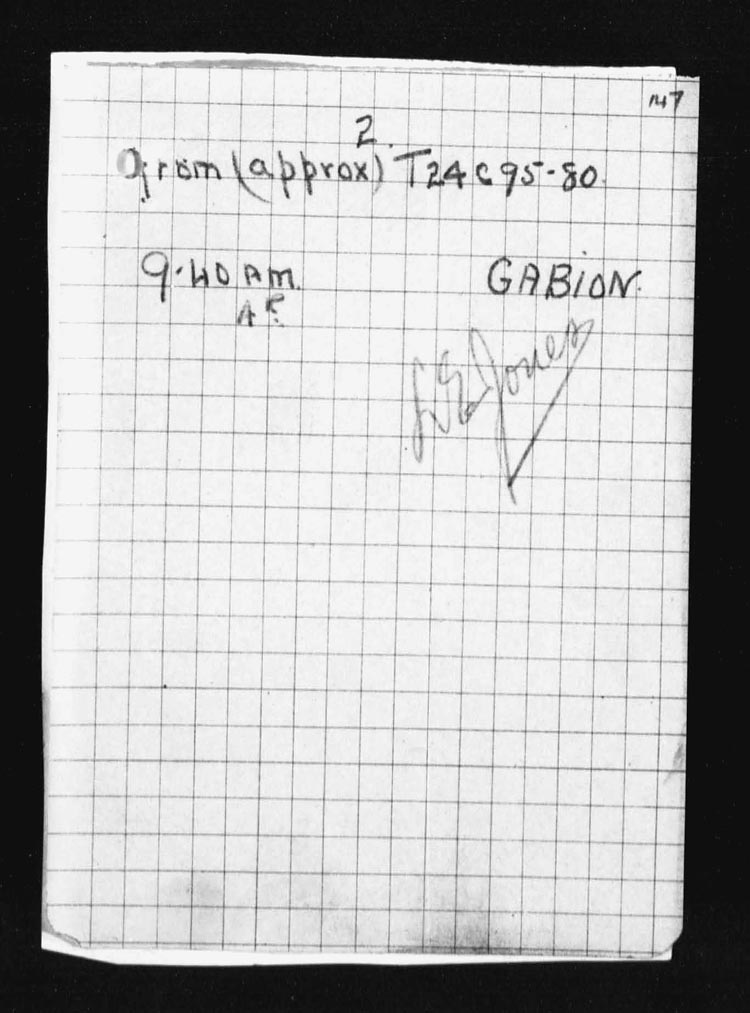 147
2.
from (approx) T24 c 95-80.
9.40 AM. GABION.
L E Jones